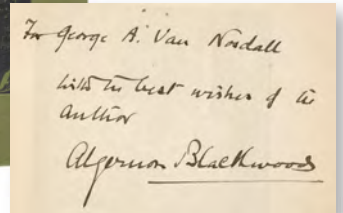 For George A. Van Nosdall
with the best wishes of the
author
Algernon Blackwood